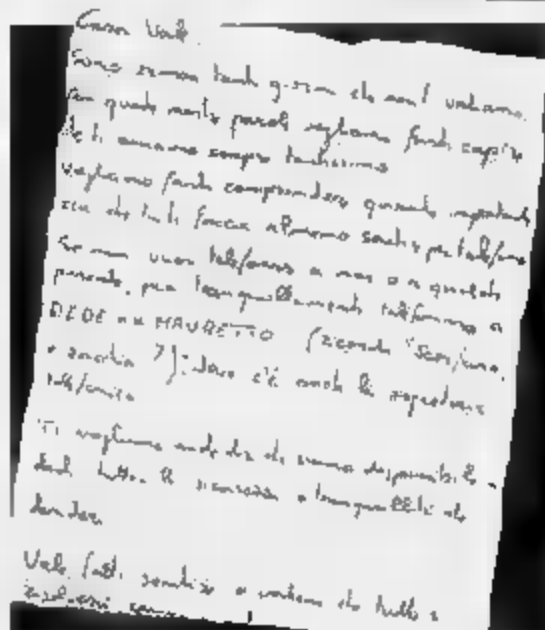 Cara Vale.
Sono ormai tanti giorni che non ti vediamo.
Con queste nostre parole vogliamo farti capire
che ti amiamo sempre tantissimo
Vogliamo farti comprendere quanto importante
sia che tu ti faccia almeno sentire per telefono
Se non vuoi telefonare a noi o a qualche
parente, puoi tranquillamente telefonare a
DEDE o a MAURETTO
e dove c'è anche la segreteria
telefonica
Ti vogliamo anche dire che siamo disponibili a
darti tutta la sicurezza e tranquillità che
desideri
Vale fatti sentire e vedrai che tutto si